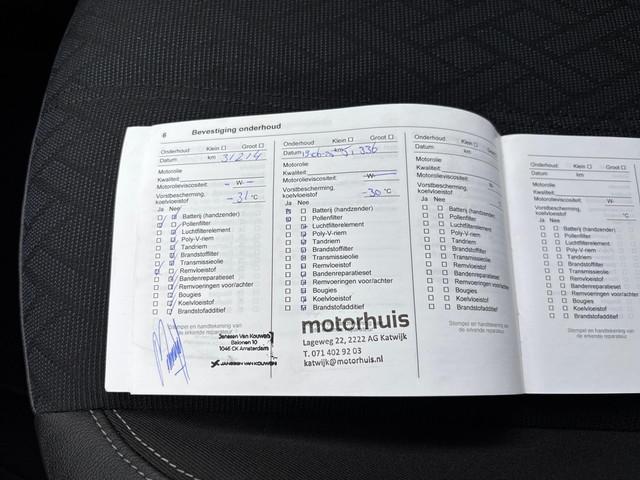 6 Bevestiging onderhoud
Onderhoud Klein Groot
Datum km 31214
Motorolie
Kwaliteit
Motorolieviscositeit - W -
Vorstbescherming,
koelvloeistof -31 °C
Ja Nee
Batterij (handzender)
Pollenfilter
Luchtfilterelement
Poly-V-riem
Tandriem
Brandstoffilter
Transmissieolie
Remvloeistof
Bandenreparatieset
Remvoeringen voor/achter
Bougies
Koelvloeistof
Brandstofadditief
Stempel en handtekening van
de erkende reparateur
Janssen Van Kouwen
Belonen 10
1046 CK Amsterdam
JANSSEN VAN KOUWEN
Onderhoud Klein Groot
Datum km 51336
Motorolie
Kwaliteit
Motorolieviscositeit W-
Vorstbescherming,
koelvloeistof -30 °C
Ja Nee
Batterij (handzender)
Pollenfilter
Luchtfilterelement
Poly-V-riem
Tandriem
Brandstoffilter
Transmissieolie
Remvloeistof
Bandenreparatieset
Remvoeringen voor/achter
Bougies
Koelvloeistof
Brandstofadditief
motorhuis
Lageweg 22, 2222 AG Katwijk
T. 071 402 92 03
katwijk@motorhuis.nl
Onderhoud Klein Groot
Datum km
Motorolie
Kwaliteit
Motorolieviscositeit
Vorstbescherming,
koelvloeistof
Ja Nee
Batterij (handzender)
Pollenfilter
Luchtfilterelement
Poly-V-riem
Tandriem
Brandstoffilter
Transmissieolie
Remvloeistof
Bandenreparatieset
Remvoeringen voor/achter
Bougies
Koelvloeistof
Brandstofadditief
Stempel en handtekening van
de erkende reparateur
Onderhoud Klein Groot
Datum km
Motorolie
Kwaliteit
Motorolieviscositeit W-
Vorstbescherming,
koelvloeistof °C
Ja Nee
Batterij (handzender)
Pollenfilter
Luchtfilterelement
Poly-V-riem
Tandriem
Brandstoffilter
Transmissieolie
Remvloeistof
Bandenreparatieset
Remvoeringen voor/achter
Bougies
Koelvloeistof
Brandstofadditief
Stempel en handtekening van
de erkende reparateur